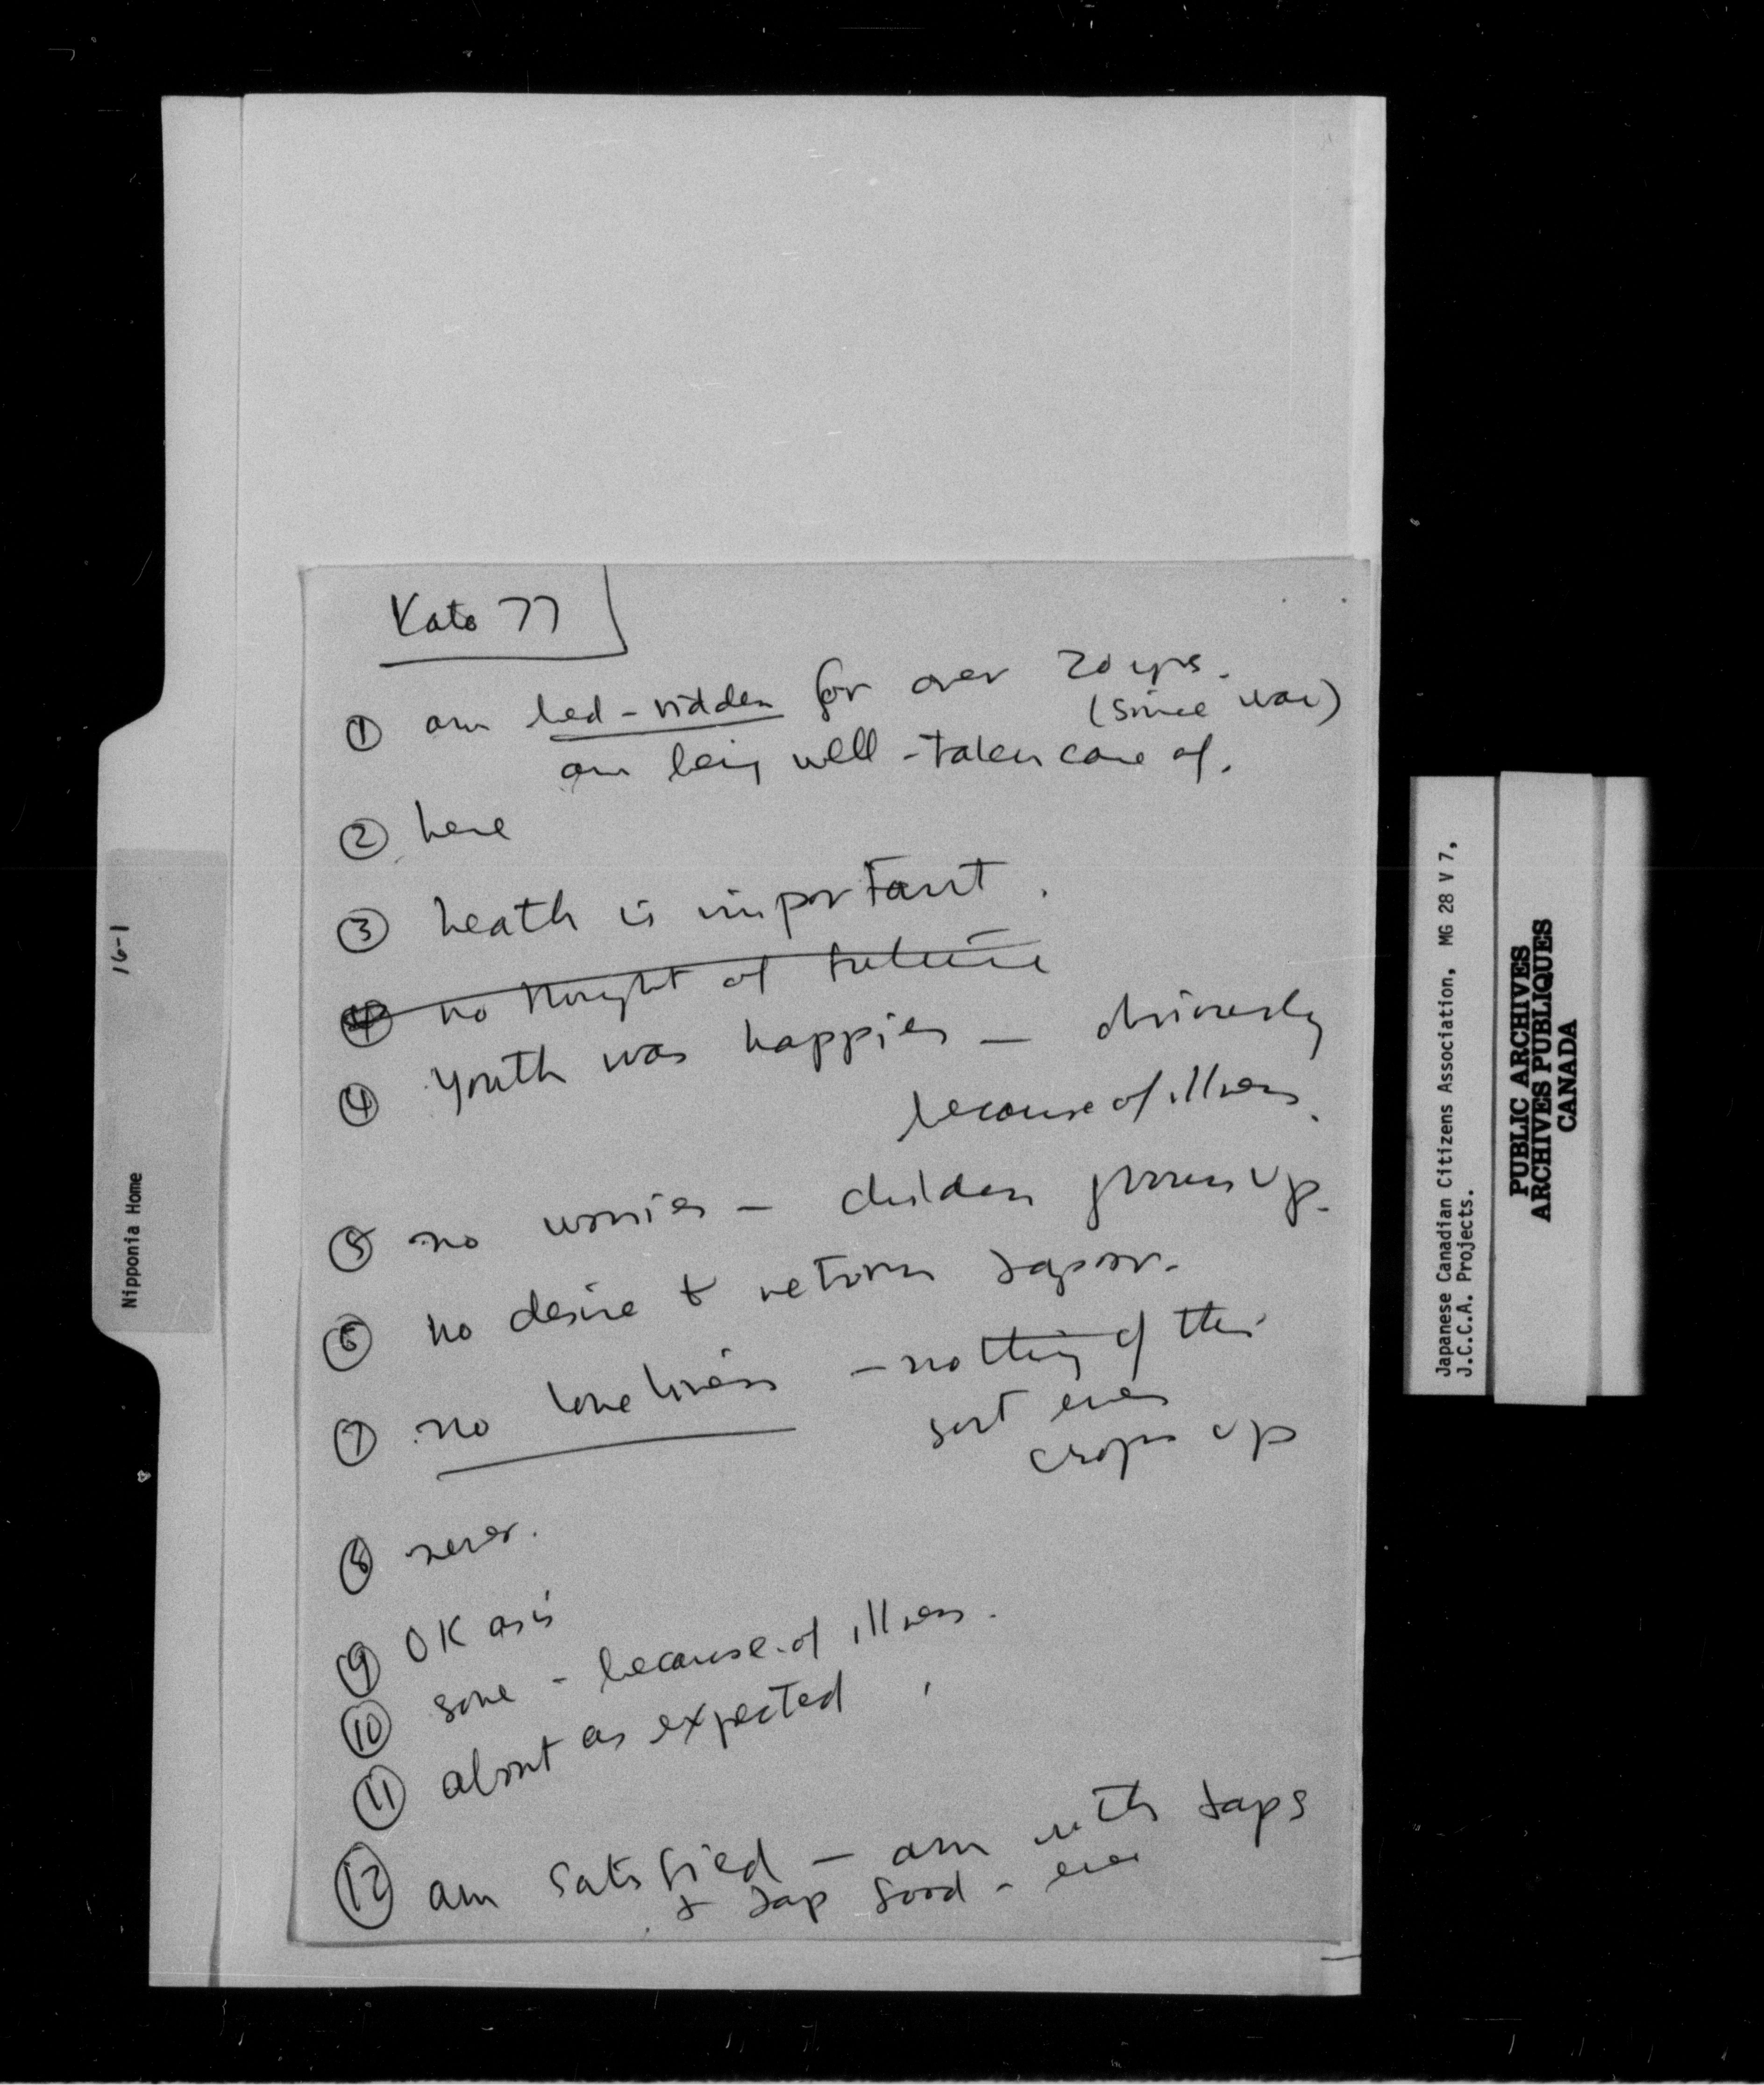 Kato 77
① am bed-ridden for over 20 yrs.
(since war)
am being well-taken care of.
② here
③ heath is important.
④ no thought of future
④ youth was happier — obviously
because of illness.
⑤ no worries — children grown up.
⑥ no desire to return Japan.
⑦ no loneliness — nothing of this
sort ever
crops up
⑧ never.
⑨ OK as is
⑩ some - because of illness.
⑪ about as expected
⑫ am satisfied — am with Japs
& Jap food - ever
16-1
Nipponia Home
Japanese Canadian Citizens Association, MG 28 V 7,
J.C.C.A. Projects.
PUBLIC ARCHIVES
ARCHIVES PUBLIQUES
CANADA